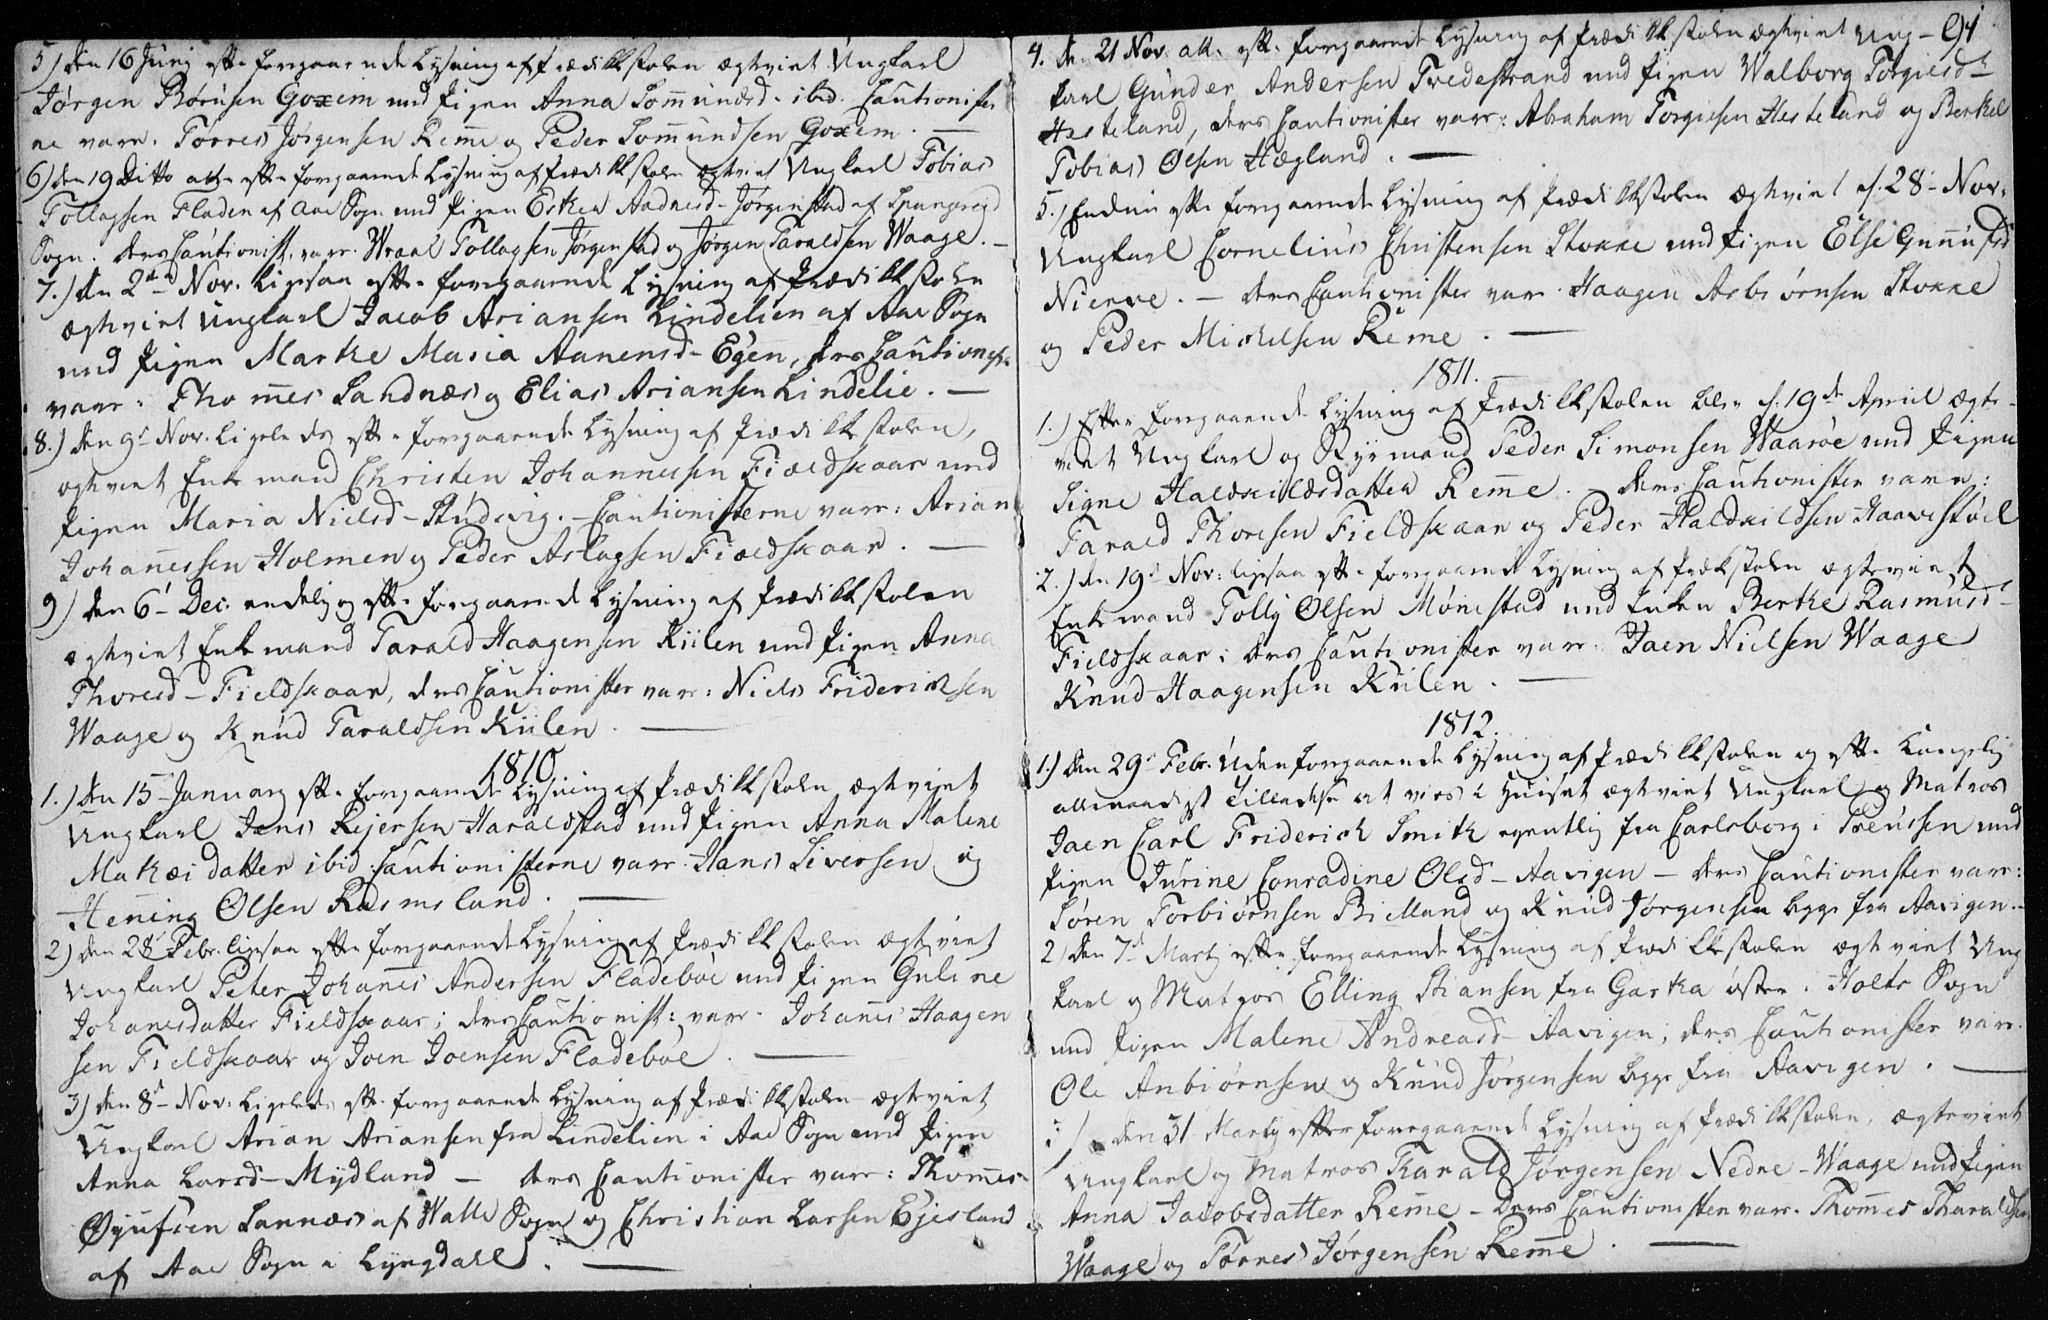 5) Den 16 Junij eft. foregaaende Lysning af Prædikkestolen ægtviet Ungkarl
Jørgen Børusen Goxem med Pigen Anna Sommundsd. ibid. Cautionister
ne vare: Torres Jørgensen Remme og Peder Sommundsen Goxem. —
6) den 19 Ditto efter foregaaende Lysning af Prædikkestolen ægtviet Ungkarl Tobias
Tollagsen Fladen af Aae Sogn med Pigen Esther Aadnesd- Jørgenstad af Spangereid
Sogn. Deres Cautionist. vare. Wraal Tollagsen Jørgenstad og Jørgen Taraldsen Waage. —
7.) den 2den Nov. ligesaa eft. foregaaende Lysning af Prædikkestolen
ægtviet Ungkarl Jacob Ariansen Lindelien af Aae Sogn
med Pigen Marthe Maria Aanensd- Egen, deres Cautionist.
vare: Thommes Sandnæs og Elias Ariansen Lindelie. —
8.) den 9d Nov. ligeledes eft. foregaaende Lysning af Prædikkestolen,
ægtviet Enkemand Christen Johannessen Fieldskaar med
Pigen Maria Nielsd- Studevig. — Cautionisterne vare: Arian
Johannessen Holmen og Peder Aslagsen Fieldskaar. —
9) den 6t Dec. endelig og eft. foregaaende Lysning af Prædikkestolen
ægtviet Enkemand Tarald Haagensen Kiilen med Pigen Anna
Thoresd- Fieldskaar, deres Cautionister vare: Niels Friderichsen
Waage og Knud Taraldsen Kiilen. —
1810
1.) den 15 January eft. foregaaende Lysning af Prædikkestolen ægtviet
Ungkarl Jens Rejersen Haraldstad med Pigen Anna Malene
Mathæidatter ibid: Cautionisterne vare. Hans Siversen og
Henning Olsen Rasmsland. —
2) den 28 Febr. ligesaa eft. foregaaende Lysning af Prædikkestolen ægtviet
Ungkarl Peter Johannes Andersen Fladeböe med Pigen Guline
Johanesdatter Fieldskaar; deres Cautionist: vare. Johannes Haagen
sen Fieldskaar og Joen Joensen Fladeböe. —
3) den 8d Nov. ligeledes eft. foregaaende Lysning af Prædikkestolen ægtviet
Ungkarl Arian Ariansen fra Lindelien i Aae Sogn med Pigen
Anna Larsd- Mydland — deres Cautionister vare: Thommes
Øyufsen Sannæs af Walle Sogn og Christian Larsen Egesland
af Aae Sogn i Lyngdahl. —
91
4. den 21 Nov. eft. foregaaende Lysning af Prædikkestolen ægtviet Ung-
karl Gunder Andersen Tvedestrand med Pigen Walborg Torgiesd-
Hesteland, deres Cautionister vare: Abraham Torgiesen Hesteland og Berthel
Tobias Olsen Hægland. —
5.) Endnu eft. foregaaende Lysning af Prædikkestolen ægtviet d. 28- Nov.
Ungkarl Cornelius Christensen Stokke med Pigen Else Gunnufsd
Nierve. — deres Cautionister vare. Haagen Asbiørnsen Stokke
og Peder Michelsen Reme. —
1811.
1.) Efter foregaaende Lysning af Prædikkestolen blev d. 19de April ægte-
viet Ungkarl og Ryemand Peder Simonsen Waarøe med Pigen
Signe Haldkildsdatter Remme. — deres Cautionister vare:
Tarald Thoresen Fieldskaar og Peder Haldkildsen Haavestøel
2.) den 19d Nov: ligesaa eft. foregaaende Lysning af Prækstolen ægteviet
Enkemand Tolly Olsen Mønestad med Enken Berthe Rasmusd-
Fieldskaar; deres Cautionister vare. Joen Nielsen Waage
Knud Haagensen Kiilen. —
1812.
1.) den 29d Febr. Uden foregaaende Lysning af Prædikkestolen og eft. Kongelig
allernaadigst Tilladelse at vies i Huuset ægtviet Ungkarl og Matros
Joen Carl Friderich Smith egentlig fra Carlsborg i Preussen med
Pigen Jurine Conradine Olsd- Aavigen — deres Cautionister vare:
Søren Torbiørnsen Bielland og Knud Jørgensen begge fra Aavigen. —
2) den 7d Marti efter foregaaende Lysning af Prædikkestolen ægtviet Ung
karl og Matros Elling Stiansen fra Gartha øster i Holts Sogn
med Pigen Malene Andreasd- Aavigen; deres Cautionister vare.
Ole Anbiørnsen og Knud Jørgensen begge fra Aavigen. —
3) den 31 Marty efter foregaaende Lysning af Prædikkestolen, ægteviet
Ungkarl og Matros Tharald Jørgensen Nedre-Waage med Pigen
Anna Jacobsdatter Remme — Deres Cautionister vare. Thommes Tharaldsen
Waage og Torres Jørgensen Remme. —